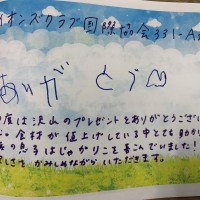 イオンズクラブ国際協会331-A
ありが とう
度は沢山のプレゼントをありがとうござい
食材が値上げしている中とても助か
の息子はじゃがりこを喜んでいました!
しさをかみしめながらいただきます。